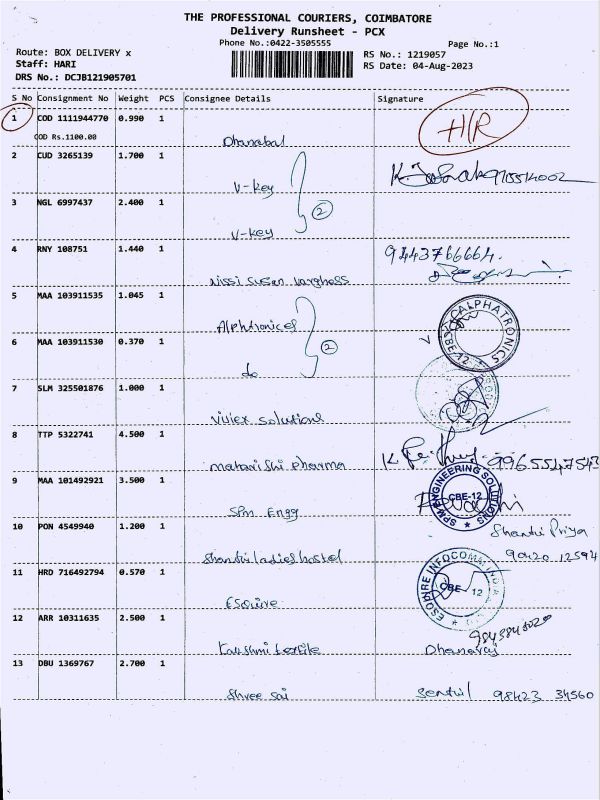 THE PROFESSIONAL COURIERS, COIMBATORE
Delivery Runsheet - PCX
Phone No.:0422-3505555
Page No.:1
Route: BOX DELIVERY x
RS No.: 1219057
Staff: HARI
RS Date: 04-Aug-2023
DRS No.: DCJB121905701
S No Consignment No Weight PCS Consignee Details Signature
1 COD 1111944770 0.990 1
COD Rs.1100.00
Dhanabal
H/R
2 CUD 3265139 1.700 1
V-key
3 NGL 6997437 2.400 1
V-key
2
4 RNY 108751 1.440 1
Nissi Susan Varghess
9443766664.
5 MAA 103911535 1.045 1
Alphtronices
CALPHATRONICS
CBE-12
6 MAA 103911530 0.370 1
do
2
7 SLM 325501876 1.000 1
Viviex Solutions
8 TTP 5322741 4.500 1
Maharishi Pharma
9965547543
9 MAA 101492921 3.500 1
SPM Engg
SPM ENGINEERING SOLUTIONS
CBE-12
10 PON 4549940 1.200 1
Shanthi ladies hostel
Shanthi Priya
90420 12594
11 HRD 716492794 0.570 1
Esquire
ESQUIRE INFOCOMM INDIA
CBE 12
12 ARR 10311635 2.500 1
Lakshmi textile
Dhanaraj
13 DBU 1369767 2.700 1
Shree Sai
Senthil 98423 34560